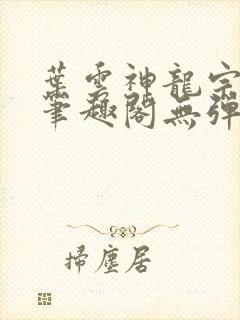 葉雲神龍宗
筆趣閣無彈
掃塵居